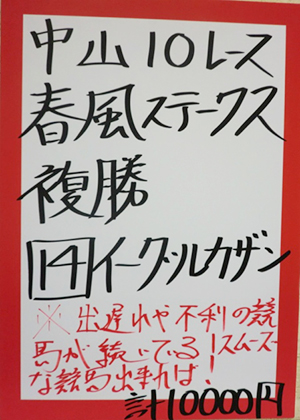 中山10レース
春風ステークス
複勝
14イークンルカザン
※出遅れや不利の競
馬が続いている!スムーズ
な競馬出来れば!
計10000円